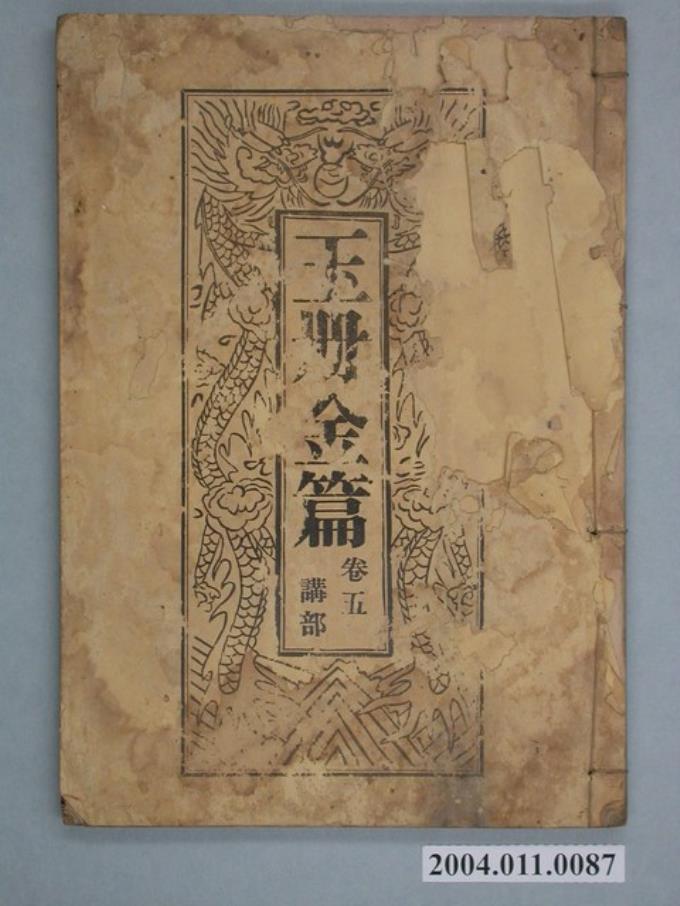 玉冊金篇
卷五
講部
2004.011.0087